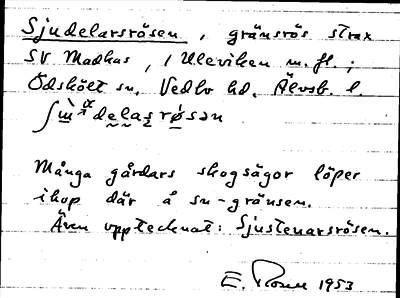 Sjudelarsrösen, gränsrös strax
SV Madkas, i Uleviken m. fl. ;
Ödskölt sn. Vedbo hd. Älvsb. l.
Många gårdars skogsägor löper
ihop där å sn-gränsen.
Även upptecknat: Sjustenarsrösen.
E. 1953